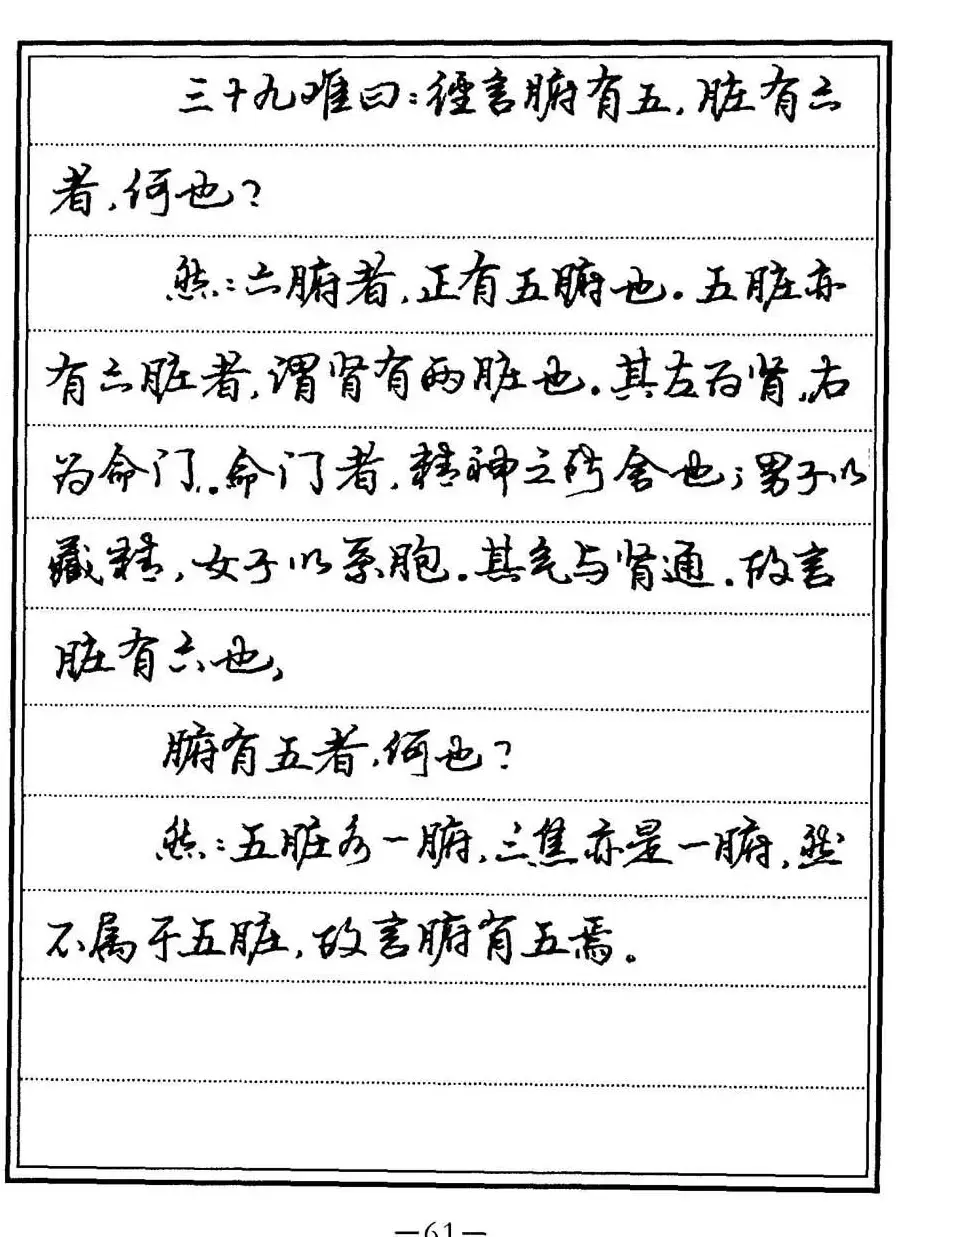 三十九难曰：經言腑有五，脏有六
者，何也？
然：六腑者，正有五腑也。五脏亦
有六脏者，谓肾有两脏也。其左为肾，右
为命门。命门者，精神之所舍也；男子以
藏精，女子以系胞。其气与肾通。故言
脏有六也，
腑有五者，何也？
然：五脏各一腑，三焦亦是一腑，然
不属于五脏，故言腑有五焉。
—61—